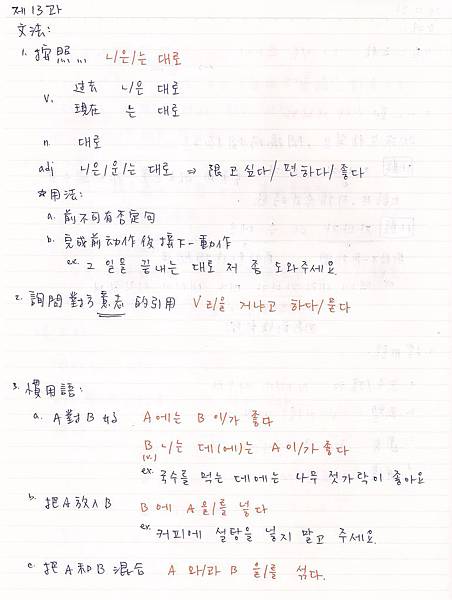 제 13과
文法:
1. 按照… ㄴ/은/는 대로
v. 过去 ㄴ/은 대로
現在 는 대로
n. 대로
adj ㄴ/은/운/는 대로 ⇒ 跟고 싶다/ 편하다/ 좋다
*用法:
a. 前不可有否定句
b. 完成前动作後接下一動作
ex. 그 일을 끝내는 대로 저 좀 도와주세요.
2. 詢問對方意志 的引用 V ㄹ/을 거냐고 하다/묻다
3. 慣用語:
a. A對B好 A에는 B 이/가 좋다
B ㄴ/는 데(에)는 A 이/가 좋다
(v.)
ex. 국수를 먹는 데에는 나무 젓가락이 좋아요
b. 把A放入B B에 A을/를 넣다
ex. 커피에 설탕을 넣지 말고 주세요.
c. 把A和B混合 A 와/과 B 을/를 섞다.